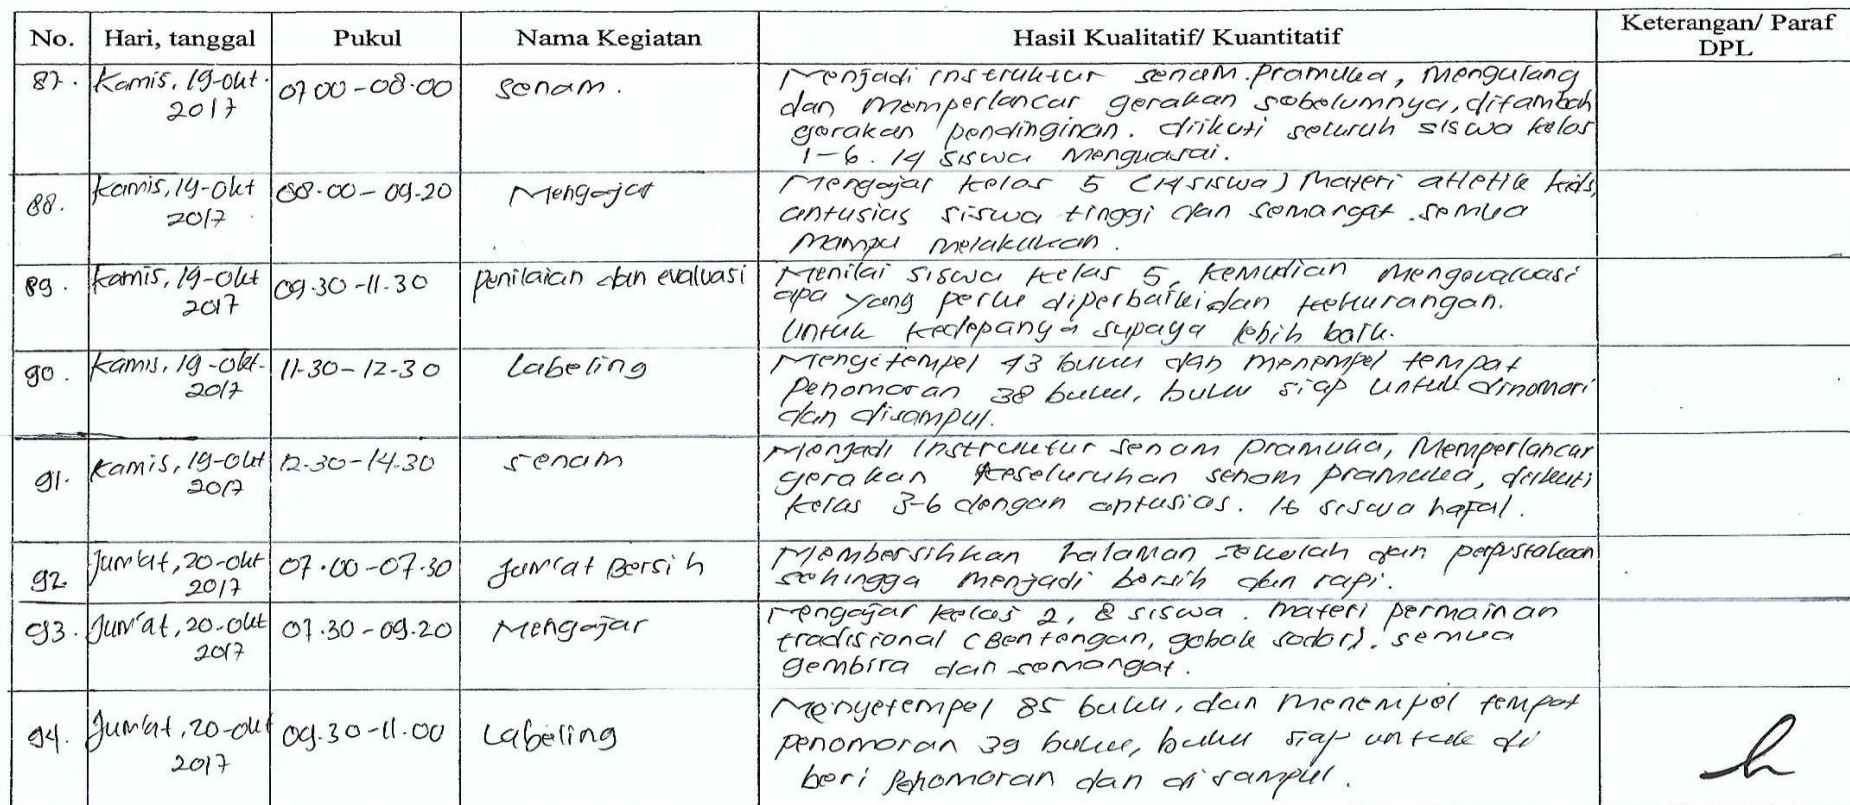 No. Hari, tanggal Pukul Nama Kegiatan Hasil Kualitatif/ Kuantitatif Keterangan/ Paraf
DPL
87. Kamis, 19-Okt. 07.00-08.00 Senam. Menjadi instruktur senam pramuka, mengulang
2017 dan memperlancar gerakan sebelumnya, ditambah
gerakan pendinginan. diikuti seluruh siswa kelas
1-6. 14 siswa menguasai.
88. Kamis, 19-Okt 08.00-09.20 Mengajar Mengajar kelas 5 (14 siswa) Materi atletik kids,
2017 antusias siswa tinggi dan semangat. semua
mampu melakukan.
89. Kamis, 19-Okt 09.30-11.30 penilaian dan evaluasi Menilai siswa kelas 5, kemudian mengevaluasi
2017 apa yang perlu diperbaiki dan kekurangan.
Untuk kedepanya supaya lebih baik.
90. Kamis, 19-Okt. 11.30-12.30 Labeling 43 buku dan menempel tempat
2017 penomoran 38 buku, buku siap untuk dinomori
dan disampul.
91. Kamis, 19-Okt 12.30-14.30 senam Menjadi Instruktur senam pramuka, Memperlancar
2017 gerakan keseluruhan senam pramuka, diikuti
kelas 3-6 dengan antusias. 16 siswa hafal.
92. Jum'at, 20-okt 07.00-07.30 Jum'at Bersih Membersihkan halaman sekolah dan perpustakaan
2017 sehingga menjadi bersih dan rapi.
93. Jum'at, 20-okt 07.30-09.20 Mengajar Mengajar kelas 2, 8 siswa. materi permainan
2017 tradisional (Bentengan, gobak sodor). semua
gembira dan semangat.
94. Jum'at, 20-okt 09.30-11.00 Labeling Menyetempel 85 buku, dan menempel tempat
2017 penomoran 39 buku, buku siap untuk di
beri penomoran dan di sampul.